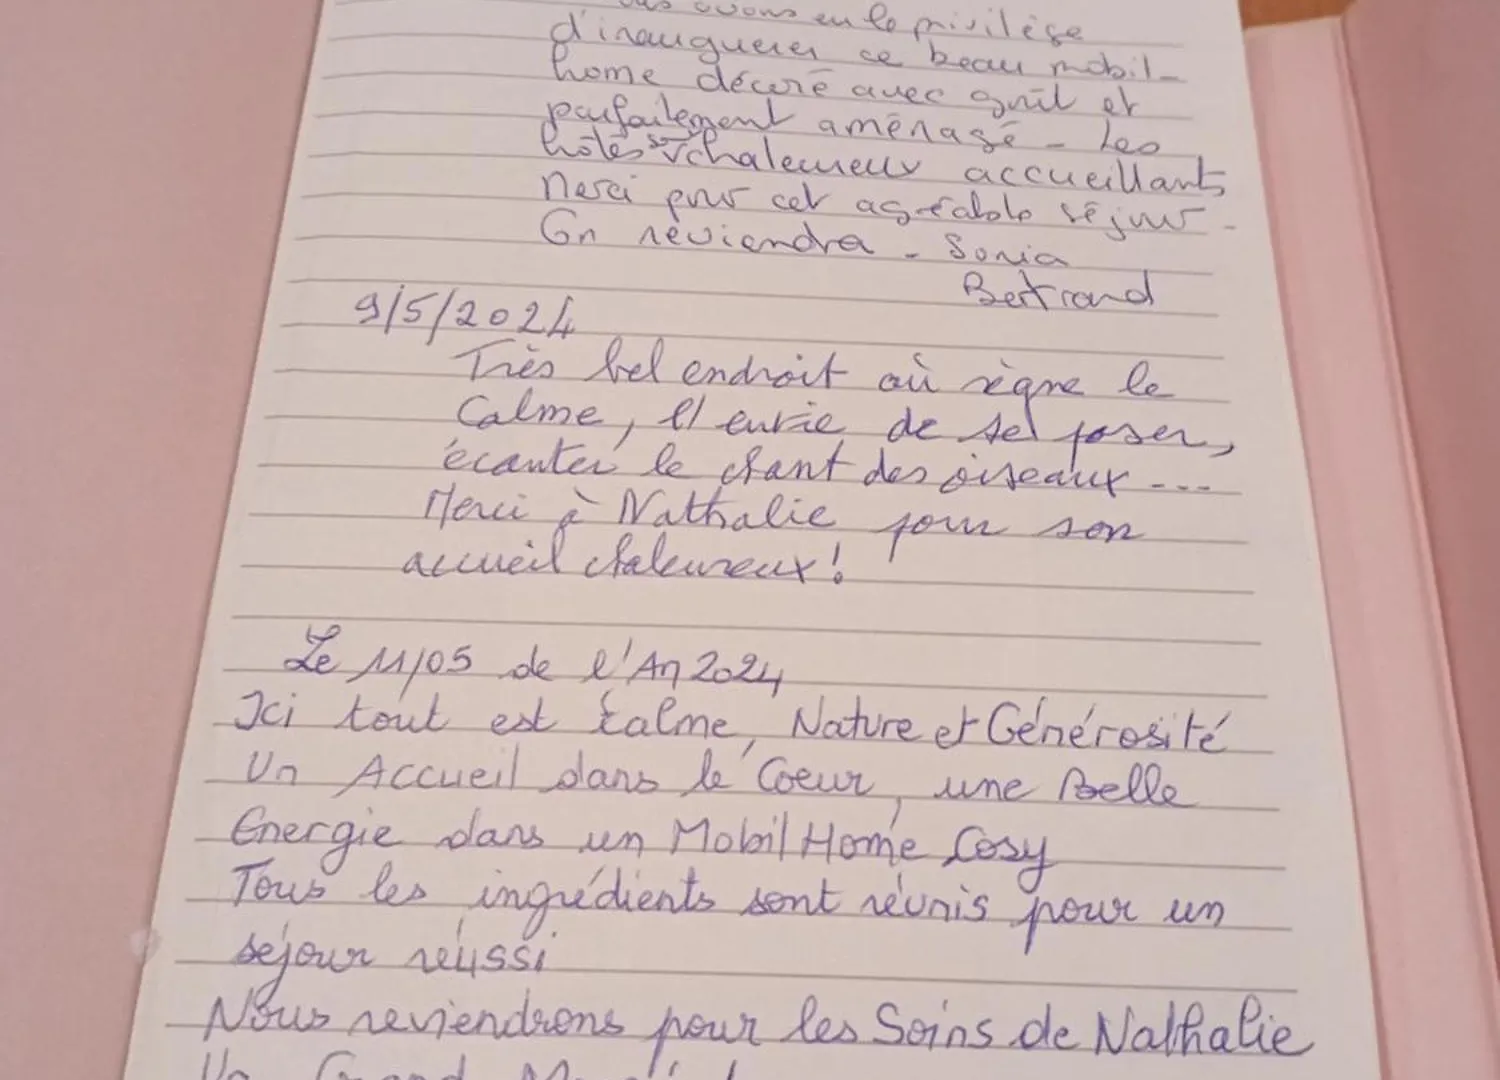 avons eu le privilège
d'inauguerer ce beau mobil-
home décoré avec goût et
parfaitement aménagé - Les
hôtes st chaleureux accueillants
Merci pour cet agréable séjour -
On reviendra - Sonia
Bertrand
9/5/2024
Très bel endroit où règne le
Calme, l'envie de se poser,
écouter le chant des oiseaux ---
Merci à Nathalie pour son
accueil chaleureux !
Le 11/05 de l'An 2024
Ici tout est calme, Nature et Générosité
Un Accueil dans le Coeur, une Belle
Energie dans un Mobil Home Cosy
Tous les ingrédients sont réunis pour un
séjour réussi
Nous reviendrons pour les Soins de Nathalie
Un Grand